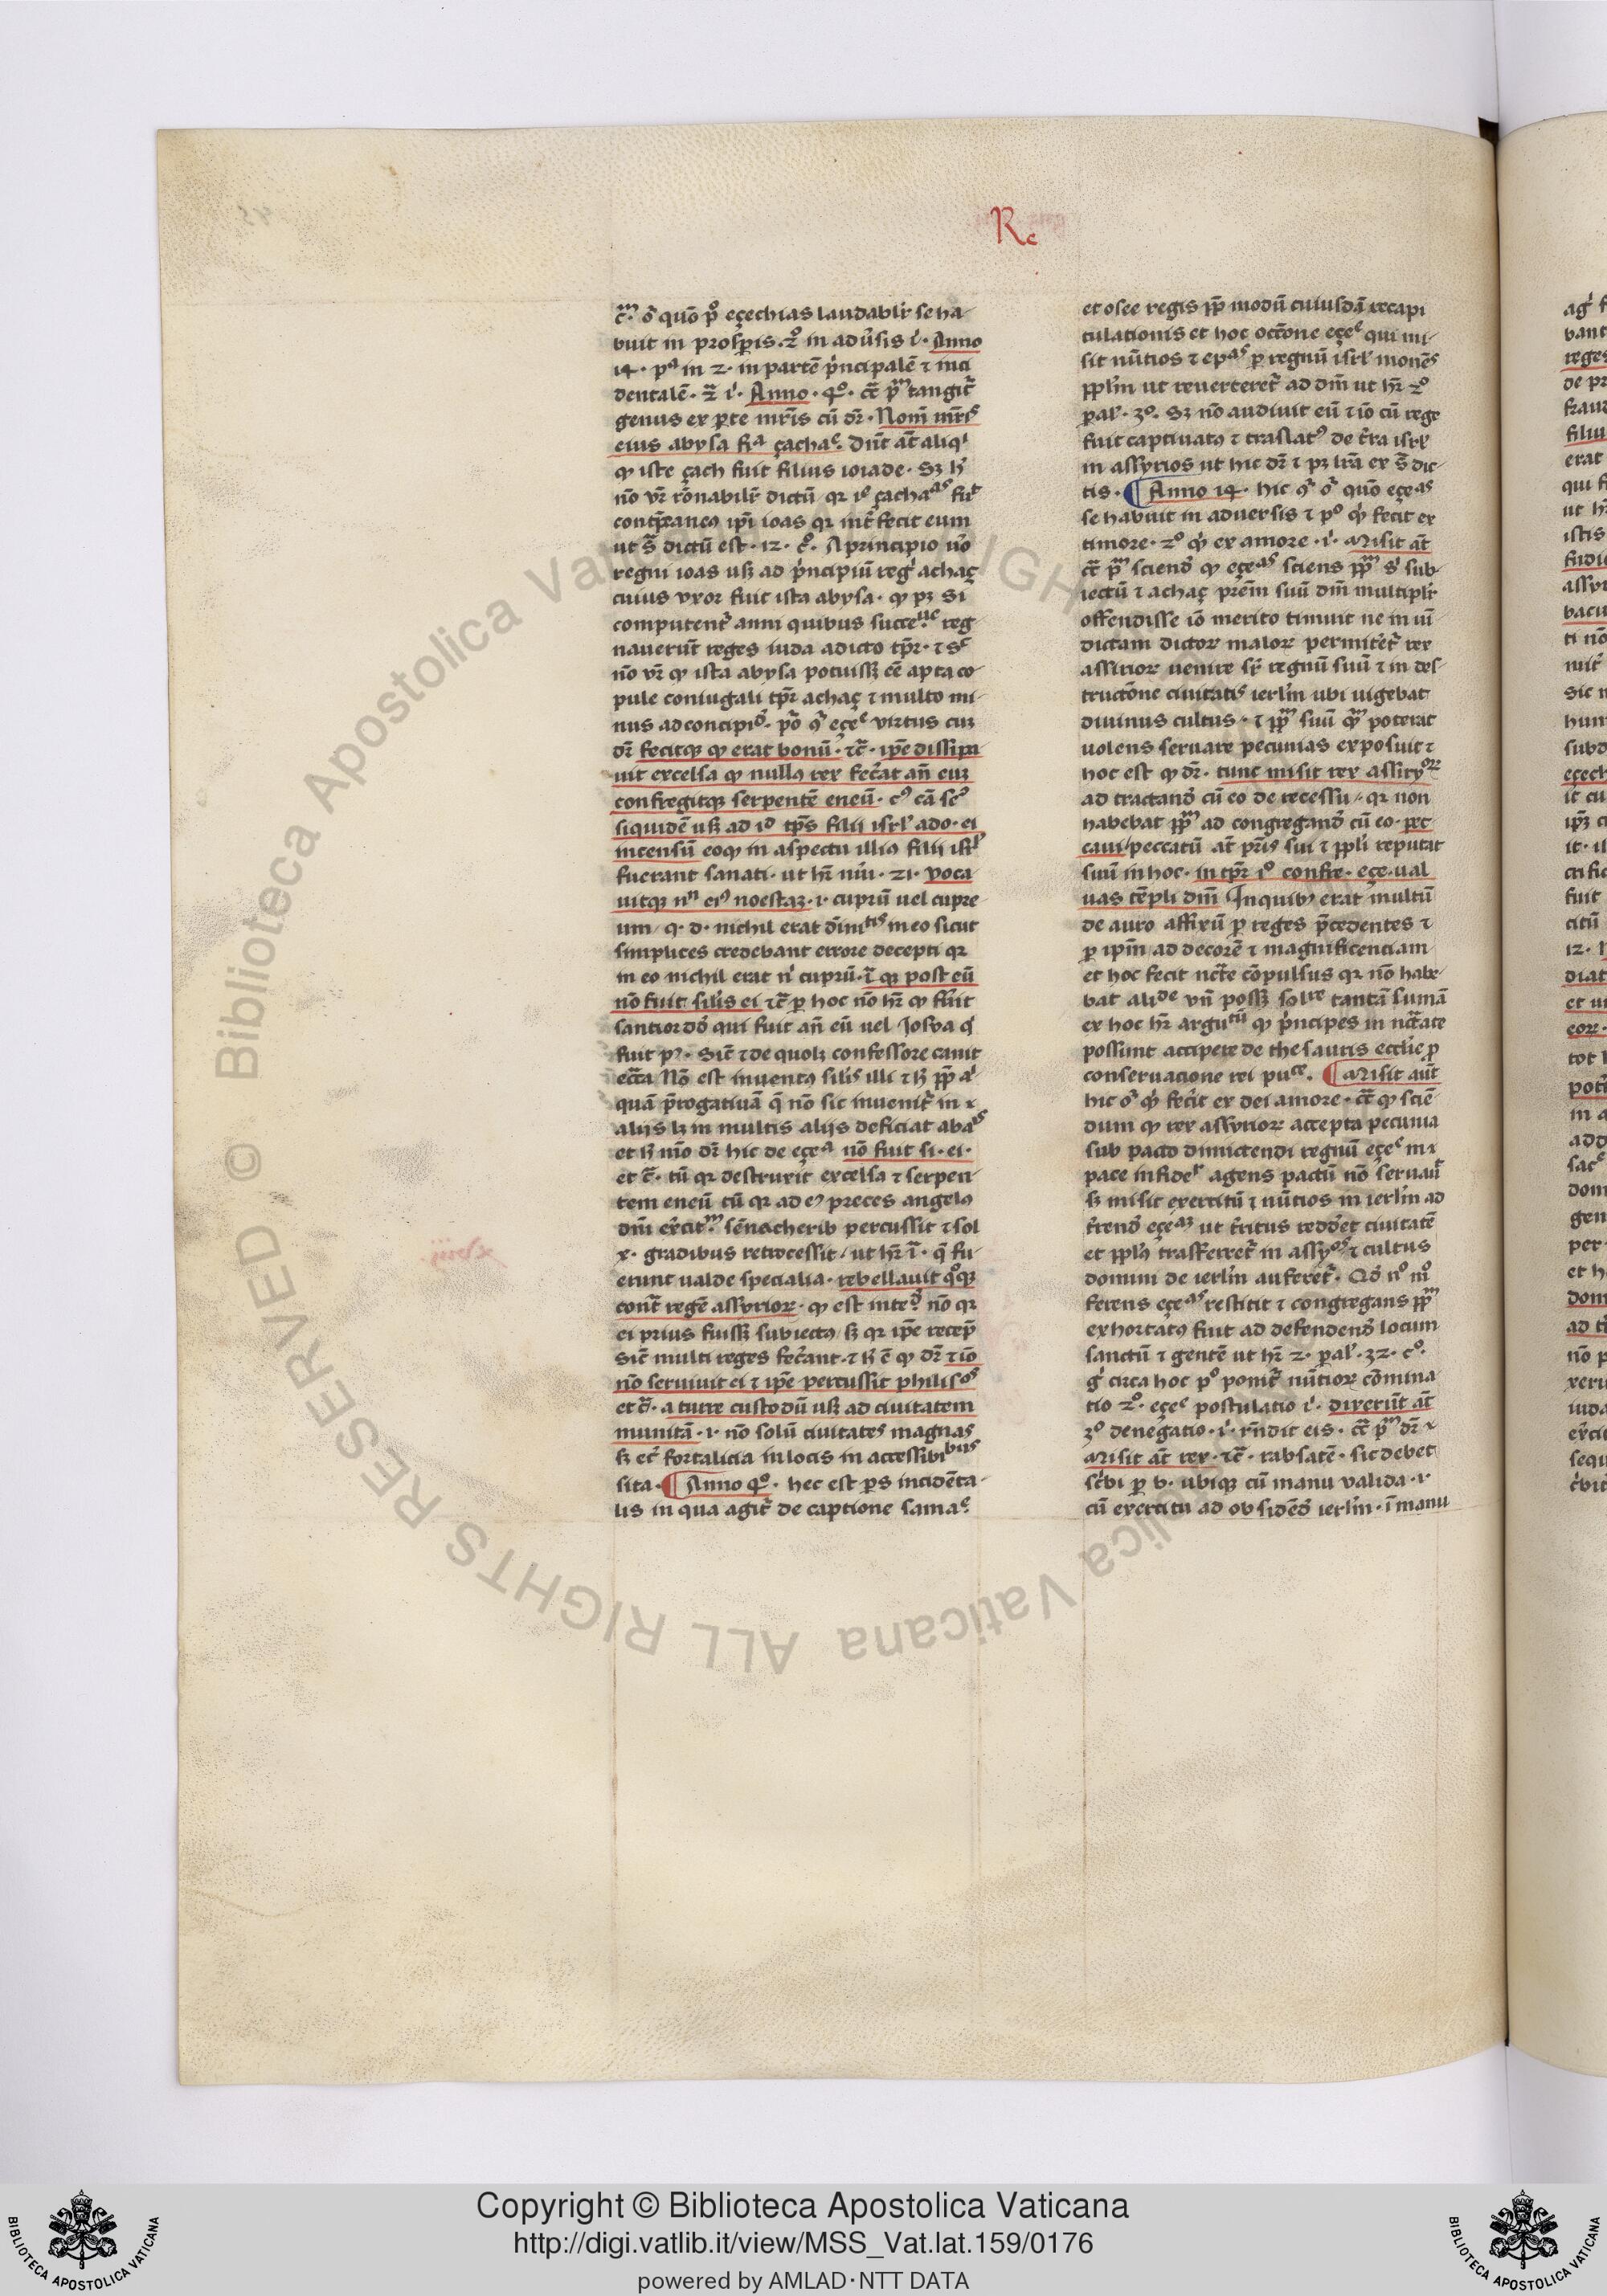 Re
c̄ᵐ. oͥ quō pͦ eçechias laudablr̄ se ha
buit in prosp̱is. 2ͦ in adūsis ī. Anno
14. pª in 2. in partē pͥncipalē ⁊ inci
dentalē. 2ª ī. Anno. 4ͦ. cͣ pͫ tangit̄
genus ex p̱te mr̄is cū dr̄. Nom̄ mr̄is
eius abysa fiª çachaᵉ. Dn̄t at̄ aliqͥ
ꝙ iste çach fuit filius ioiade. Sꝫ hͦ
nō vr̄ rōnabilr̄ dictū qr iᵉ çachaªˢ fuit
ut s̄ dictū est. 12. cͦ. A principio uͦo
regni ioas usꝫ ad pͥncipiū regͥ achaç
cuius vxor fuit ista abysa. ꝙ pꝫ si
computent̄ anni quibus succeᵘᵉ reg
nauerūt reges iuda adicto tp̄r. ⁊ sᶜ
nō vr̄ ꝙ ista abysa potuissꝫ cē apta co
pule coniugali tp̄r achaç ⁊ multo mi
nus ad concipiᵈ. pͦo qͥ eçeᵉ virtus cuꝫ
dr̄ fecitqꝫ ꝙ erat bonū. ⁊c̄. ip̄e dissipa
uit excelsa ꝙ nullꝯ rex fec̄at an̄ euꝫ
confregitqꝫ serpentē eneū. cꝰ cā scꝰ
siquidē usꝫ ad iᵈ tp̄s filii isrl̄ ado. ei
incensū eoꝙ in aspectu illiꝯ filii isrl̄
fuerant sanati. ut hr̄ nūi. 21. voca
uitqꝫ nⁿ eiꝰ noestaꝫ. i. cuprū uel cupre
um. q. d. nichil erat dīnitⁱˢ in eo sicut
simplices credebant errore decepti qr
in eo nichil erat nͥ cuprū. ī ꝙ post eū
nō fuit silis ei ⁊c̄ p̱ hoc nō hr̄ ꝙ fūit
santior dō qui fuit an̄ eū uel Josva qͥ
fuit pꝰ. Sic̄ ⁊ de quolꝫ confessore canit
ecͣcͣa Nō est inuentꝯ silis illi ⁊ hͦ pp̄ aͥ
quā p̄rogatiuā q̄ nō sic inuenit̄ in
aliis lꝫ in multis aliis deficiat abaˢ
et hͦ mō dr̄ hic de eçeª nō fuit si. ei.
et c̄. tū qr destruxit excelsa ⁊ serpen
tem eneū tū qr ad eꝰ preces angelꝯ
dn̄i exercitᵐ sēnacherib percussit ⁊ sol
x. gradibus retrocessit. ut hr̄ ī. q̄ fu
erunt ualde specialia. rebellauit qͦqꝫ
cont̄ regē assyrioꝝ. ꝙ est inteᵈ nō qr
ei prius fuissꝫ subiectꝯ sꝫ qr ip̄e recep̄
sic̄ multi reges fec̄ant. ⁊ hͦ ē ꝙ dr̄ ⁊ iō
nō seruiuit ei ⁊ ip̄e percussit philisᵒˢ
et c̄. a turre custodū usꝫ ad ciuitatem
munitā. i. nō solū ciuitates magnas
sꝫ etͥ fortalicia in locis in accessibiᵇᵘˢ
sita. Anno 4ͦ. hec est p̱s incidēta
lis in qua agit̄ de captione samaᵉ.
et osee regis pp̄ modū cuiusdā recapi
tulationis et hoc occōne eçeᵉ qui mi
sit nūtios ⁊ epªˢ p̱ regnū isrl̄ monēs
pplm̄ ut reuerteret̄ ad dm̄ ut hr̄ 2ͦ
pal̄. 30. Sꝫ nō audiuit eū ⁊ iō cū rege
fuit captiuatꝯ ⁊ traslatꝰ de t̄ra isrl̄
in assyrios ut hic dr̄ ⁊ pꝫ lr̄a ex s̄ dic
tis. Anno 14. hic qͥ oͥ quō eçeªˢ
se habuit in aduersis ⁊ pͦ qͥ fecit ex
timore. 2ͦ qͥ ex amore. ī. Misit at̄
cͣ pͫ sciendō ꝙ eçeªˢ sciens pp̄ᵐ sͥ sub
iectū ⁊ achaç pr̄em suū dm̄ multiplr̄
offendisse iō merito timuit ne in uī
dictam dictoꝝ maloꝝ permitēt̄ rex
assirioꝝ uenire sr̄ regnū suū ⁊ in des
tructōne ciuitatis ierlm̄ ubi uigebat
diuinus cultus. ⁊ pp̄ᵐ suū qͫ poterat
uolens seruare pecunias exposuit ⁊
hoc est ꝙ dr̄. tunc misit rex assiryᵒʳ
ad tractandō cū eo de recessu. qr non
habebat pp̄ᵐ ad congregandō cū eo. pec
caui peccatū at̄ pr̄is sui ⁊ pp̄li reputat
suū in hoc. in tp̄r iͦ confre. eçe. ual
uas tēpli dn̄i Inquibꝰ erat multū
de auro affixū p̱ reges p̄cedentes ⁊
p̱ ipm̄ ad decorē ⁊ magnificenciam
et hoc fecit nc̄te cōpulsus qr nō habe
bat aliᵈᵉ vn̄ possꝫ solʳᵉ tantā sumā
ex hoc hr̄ arguᵗū ꝙ pͥncipes in nc̄tate
possunt accipere de thesauris ecclie p̱
conseruacione rei puᶜᵉ. Misit aūt
hic oͥ qͥ fecit ex dei amore. cͣ ꝙ sciē
dum ꝙ rex assyrioꝝ accepta pecunia
sub pacto dimictendi regnū eçeᵉ in
pace infidel̄ agens pactū nō seruauͥ
sꝫ misit exercitū ⁊ nūtios in ierlm̄ ad
t̄rendō eçeªᵐ ut t̄ritus reddet ciuitatē
et pplꝯ trasferret̄ in assyᵒˢ ⁊ cultus
domini de ierlm̄ auferet̄. Qd̄ nͦ mͦ
ferens eçeªˢ restitit ⁊ congregans pp̄ᵐ
exhortatꝯ fuit ad defendendō locum
sanctū ⁊ gentē ut hr̄ 2. pal̄. 32. cͦ.
gͥ circa hoc pͦ ponit̄ nūtioꝝ cōmina
tio 2ͦ. eçeᵉ postulatio ī. dixerūt at̄
3ͦ denegatio. ī. rn̄dit eis. cͣ pͫ dr̄
Misit at̄ rex. ⁊c̄. rabsatē. sic debet
sc̄bi p̱ b. ubiqꝫ cū manu valida. i.
cū exercitu ad obsidēdō ierlm̄. ī manu
Copyright © Biblioteca Apostolica Vaticana
http://digi.vatlib.it/view/MSS_Vat.lat.159/0176
powered by AMLAD·NTT DATA
BIBLIOTECA APOSTOLICA VATICANA
BIBLIOTECA APOSTOLICA VATICANA